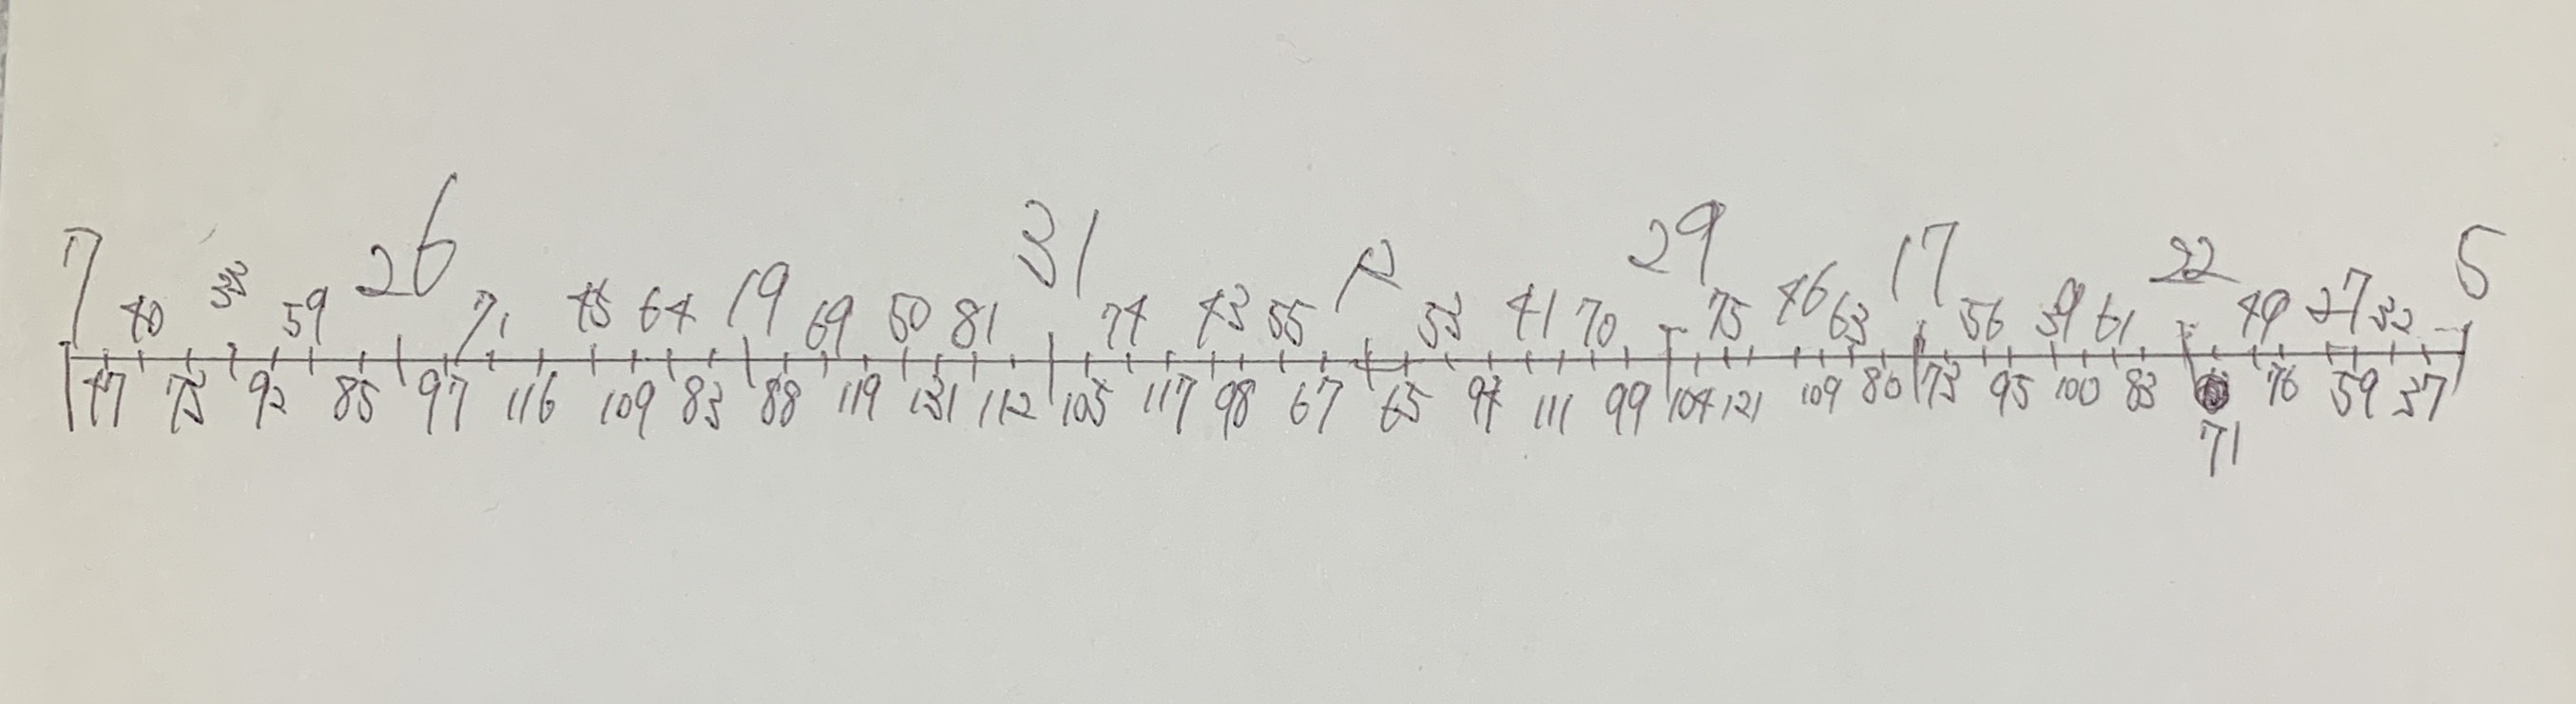 7 40 33 59 26 71 45 64 19 69 50 81 31 74 43 55 12 53 41 70 29 75 46 63 17 56 39 61 22 49 27 32 5
47 73 92 85 97 116 109 83 88 119 131 112 105 117 98 67 65 94 111 99 104 121 109 80 73 95 100 83 76 59 37
71